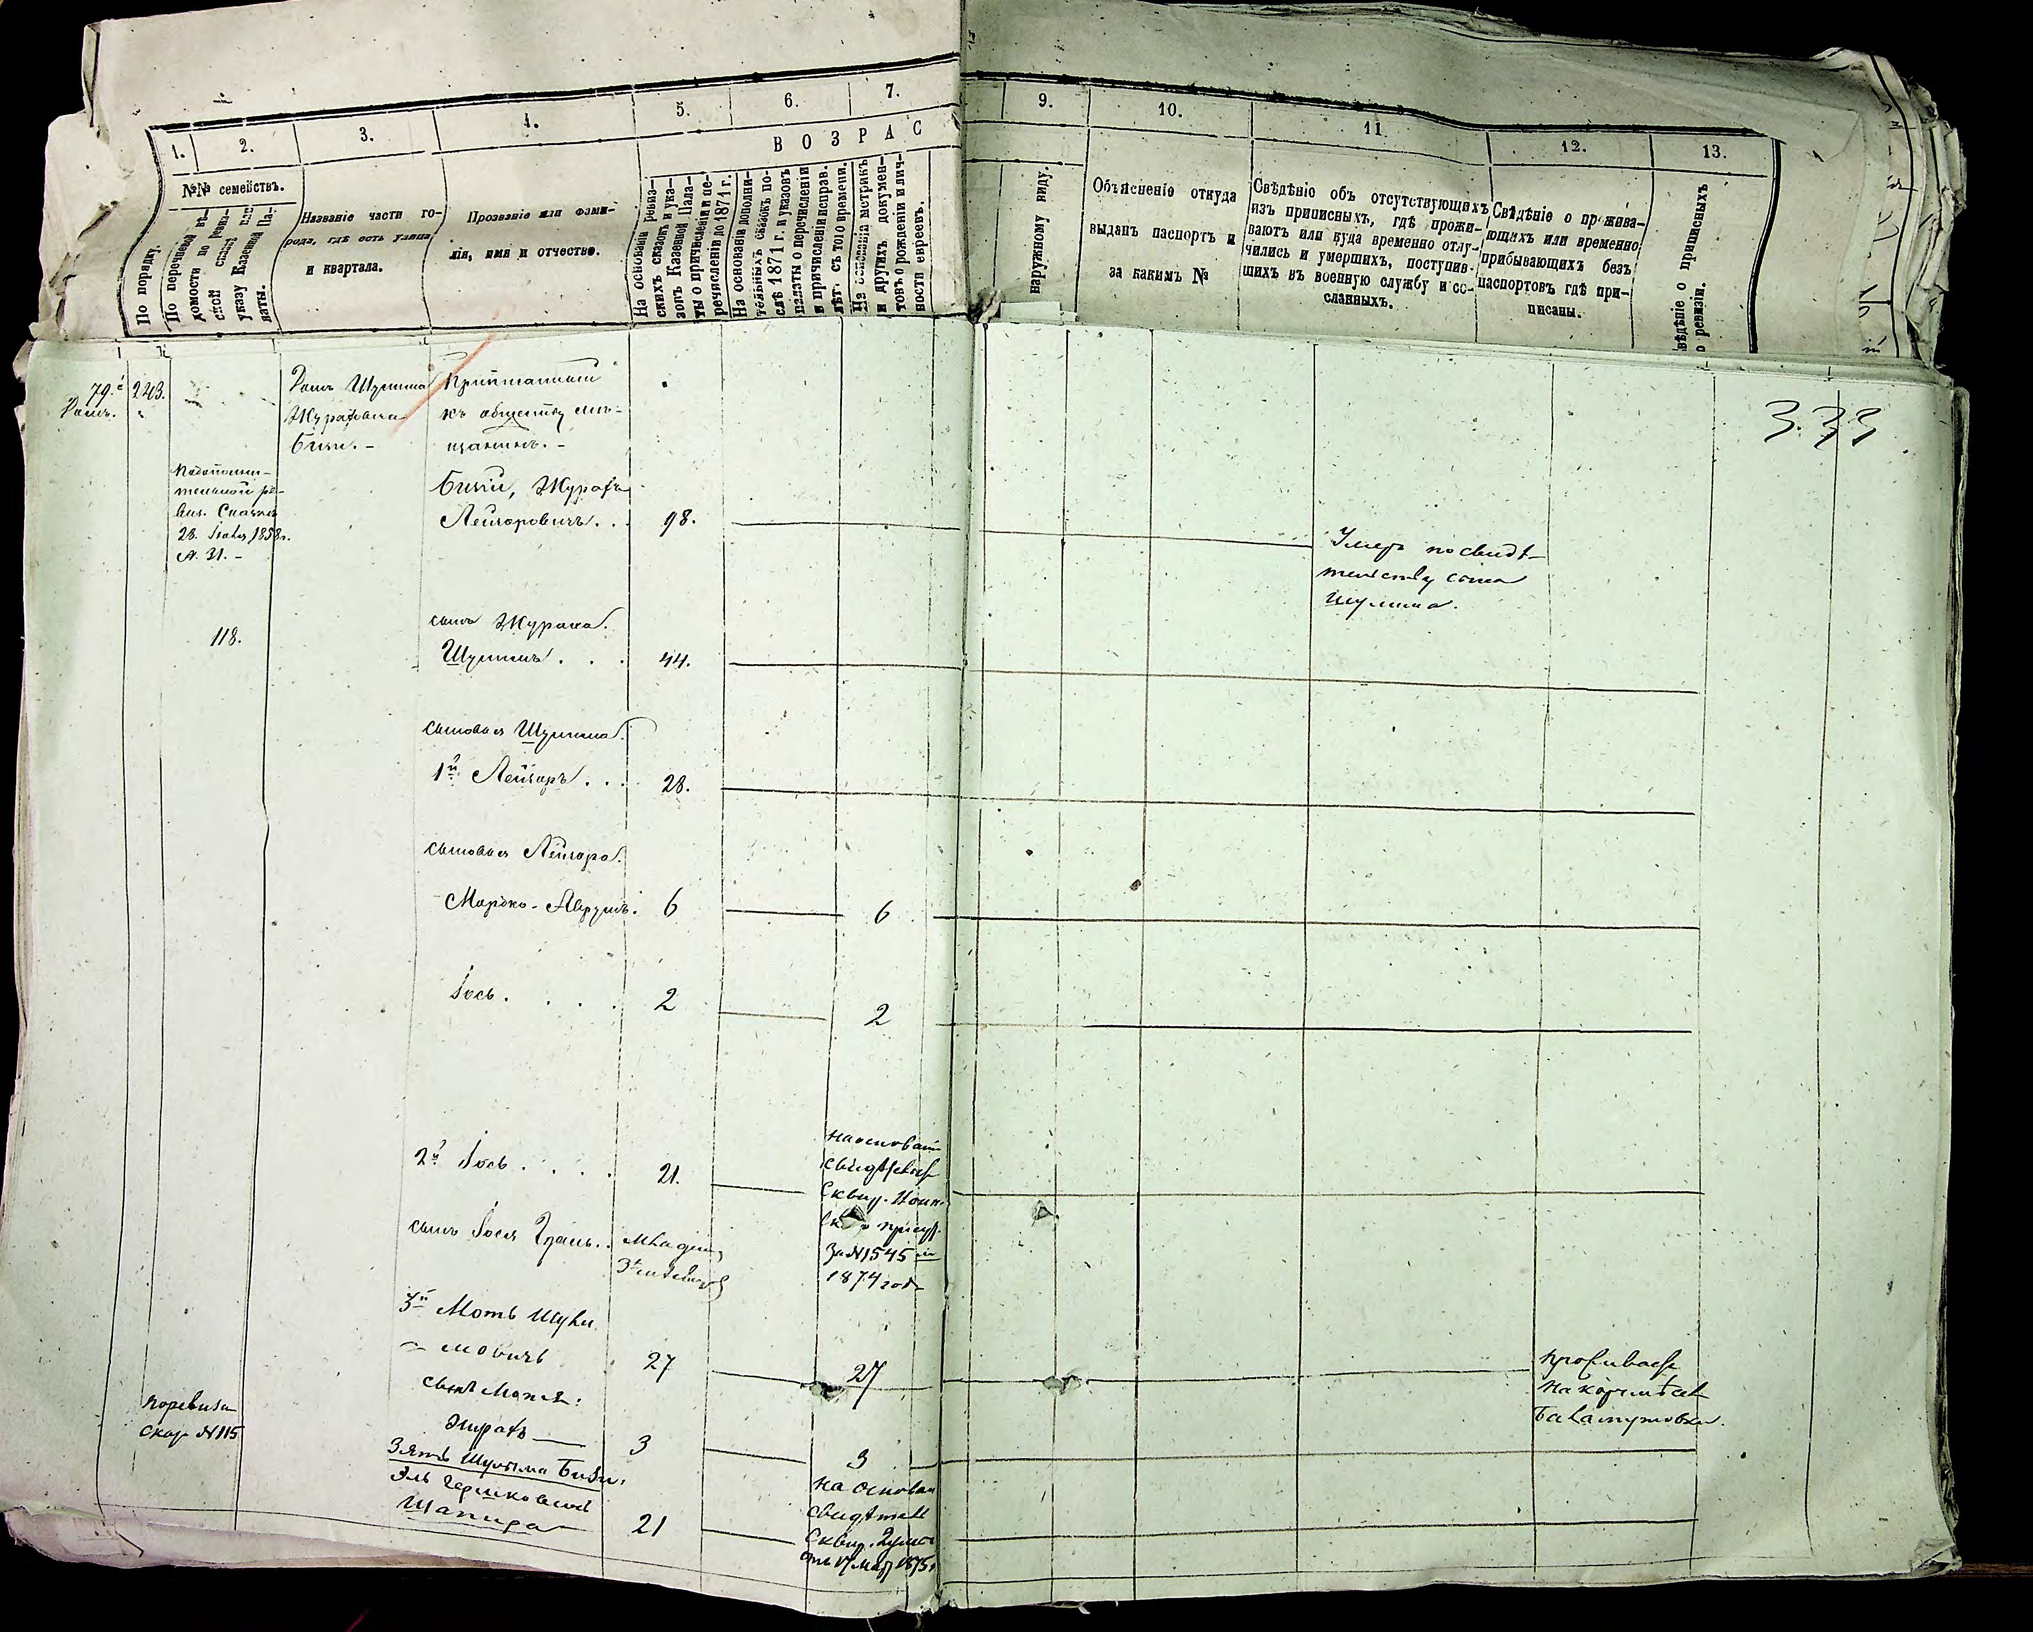 1.
2.
3.
4.
5.
6.
7.
9.
10.
11.
12.
13.
ВОЗРАС
№№ семействъ.
По порядку.
По перечневой вѣ-
домости по ревиз-
ской сказкѣ или
указу Казенной Па-
латы.
Названіе части го-
рода, гдѣ есть улица
и квартала.
Прозваніе или фами-
лія, имя и отчество.
На основаніи ревиз-
скихъ сказокъ и ука-
зовъ Казенной Пала-
ты о причисленіи и пе-
речисленіи до 1871 г.
На основаніи дополни-
тельныхъ сказокъ по-
слѣ 1871 г. и указовъ
палаты о перечисленіи
и причисленіи исправ.
лѣт. съ того времени.
На основаніи метрикъ
и другихъ докумен-
товъ о рожденіи и лич-
ности евреевъ.
наружному виду.
Объясненіе откуда
выданъ паспортъ и
за какимъ №
Свѣдѣніе объ отсутствующихъ
изъ приписныхъ, гдѣ прожи-
ваютъ или куда временно отлу-
чились и умершихъ, поступив-
шихъ въ военную службу и со-
сланныхъ.
Свѣдѣніе о прожива-
ющихъ или временно
прибывающихъ безъ
паспортовъ гдѣ при-
писаны.
вѣдѣніе о приписныхъ
о ревизіи.
333
79.
243.
Домъ Шулима
Журавва
Бизи. -
Приписанный
къ обществу мѣ-
щанинъ. -
Бизій, Журавъ
Лейзоровичъ . . 98.
28. 1858 г.
№. 31. -
Умеръ по свидѣ-
тельству сына
Шулима.
118.
сынъ Журава.
Шулимъ . . . 44.
сыновья Шулима.
1й Лейзоръ . . . 28.
сыновья Лейзора.
Мордко-Аврумъ. 6 6
Іось . . . . 2 2
2й Іось . . . . 21.
на основаніи
Сквир.
за №1545
1874 год
сынъ Іося
3й Мотъ Шули
мовичъ 27 27
проживаетъ
сынъ Мотя:
Журавъ 3 3
по ревизи
сказ №115
Зять Шулима Бизи.
Эль Гершковичъ
Шапира 21
на основан
Сквир.
отъ 17 1875 г